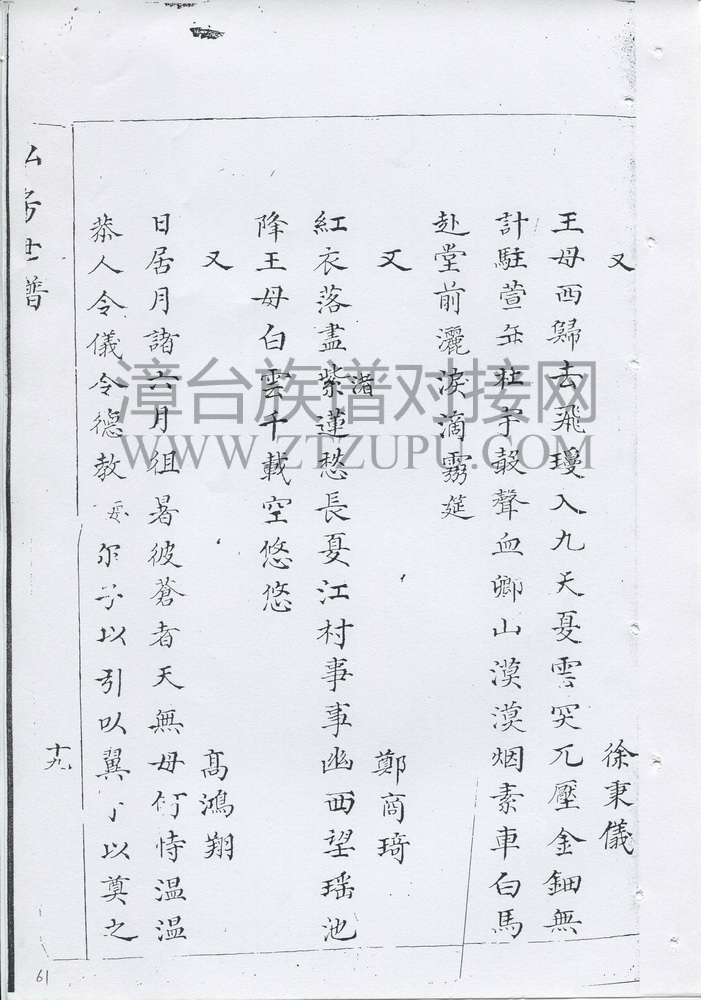 又 徐秉儀
王母西歸去飛瓊入九天夏雲突兀壓金鈿無
計駐萱 杜宇 聲血卿山漠漠烟素車白馬
赴堂前灑淚滴霧筵
又 鄭商琦
紅衣落盡紫蓮愁長夏江村事事幽西望瑶池
渚
降王母白雲千載空悠悠
又 高鴻翔
日居月諸六月徂暑彼蒼者天無母何恃温温
恭人令儀令德教 尔子以引以翼 以奠之
世譜
十九
61
漳台族谱对接网
WWW.ZTZUPU.COM